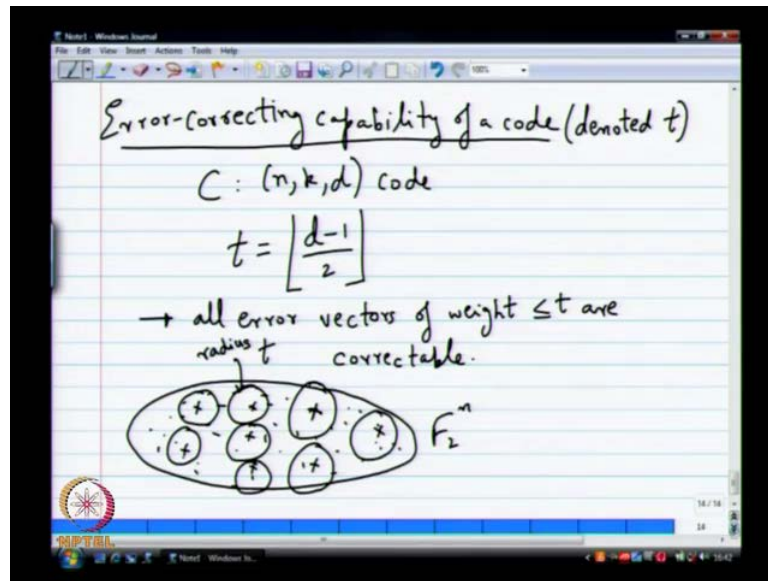 Note1 - Windows Journal
File Edit View Insert Actions Tools Help
100%
Error-correcting capability of a code (denoted t)
C : (n, k, d) code
t = ⌊(d-1)/2⌋
→ all error vectors of weight ≤ t are
correctable.
radius t
F₂ⁿ
14 / 14
14
NPTEL
Note1 - Windows Jo...
16:42